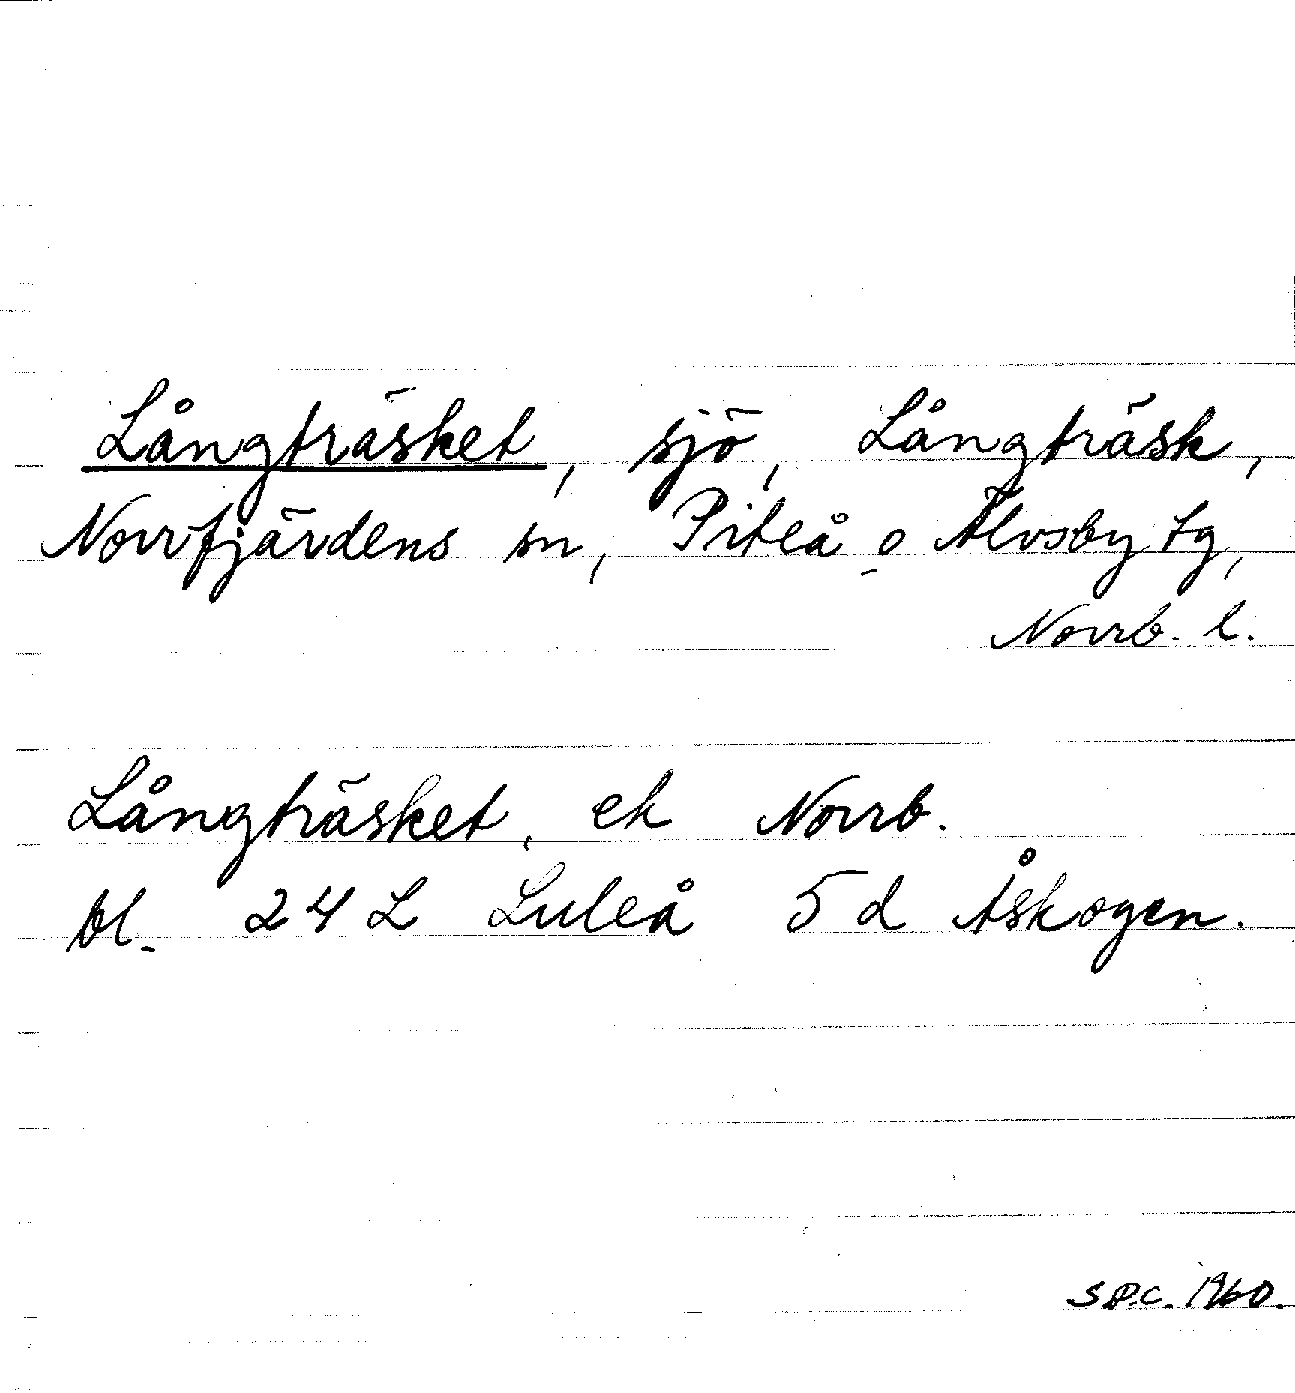 Långträsket, sjö, Långträsk,
Norrfjärdens sn, Piteå o Älvsby tg,
Norrb. l.
Långträsket, ek Norrb.
bl. 24 L Luleå 5 d Åskogen.
S P.C. 1960.